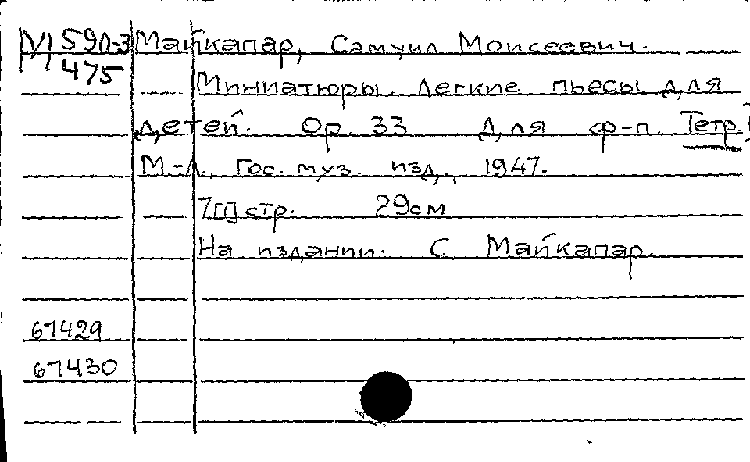 М 59Л-3 Майкапар, Самуил Моисеевич.
475
Миниатюры. Легкие пьесы для
детей. Ор. 33 Для ф-п. Тетр. I
М.-Л., Гос. муз. изд., 1947.
7[1] стр. 29см
На издании: С. Майкапар.
67429
67430